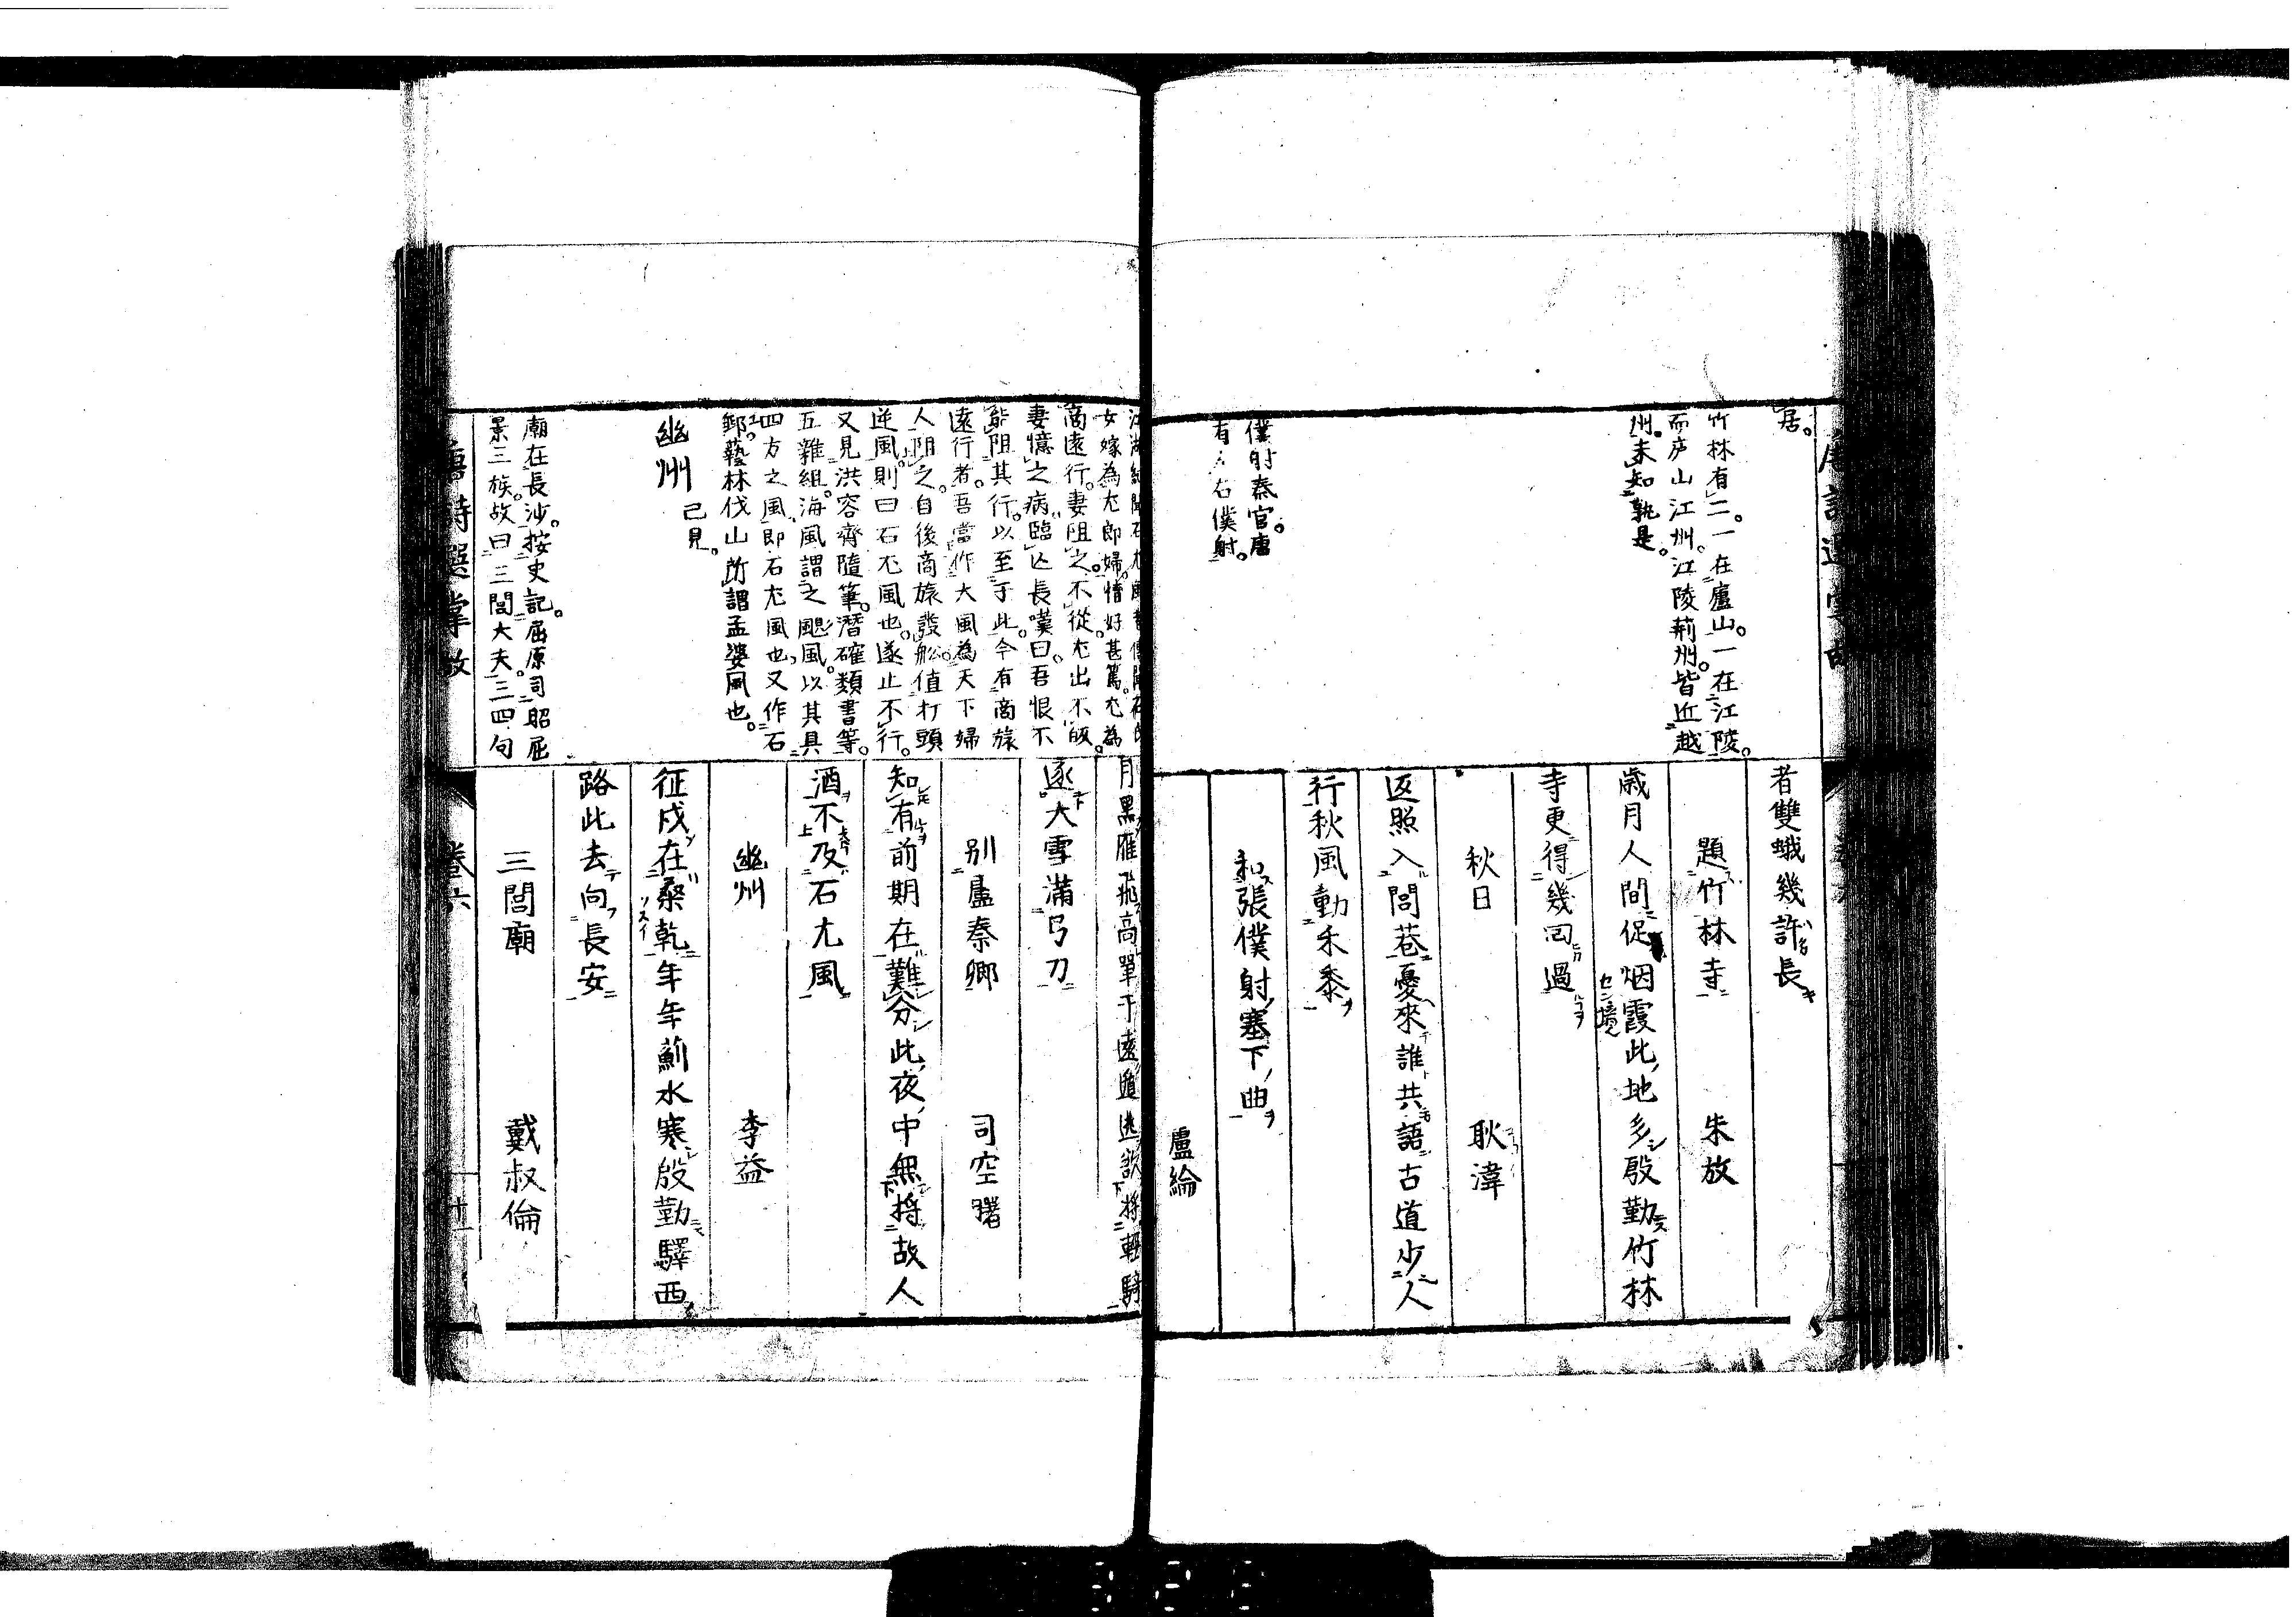 居。
竹林有二。一在廬山。一在江陵。
而庐山江州。江陵荊州。皆近越
州。未知孰是。
僕射秦官。唐
有左右僕射。
者雙蛾幾許長
題竹林寺 朱放
歳月人間促烟霞此地多殷勤竹林
寺更得幾回過
秋日 耿湋
返照入閭巷憂來誰共語古道少人
行秋風動禾黍
和張僕射塞下曲
盧綸
女嫁為尤郎婦。情好甚篤。尤為
商遠行。妻阻之。不從。尤出不皈。
妻憶之病。臨亡長嘆曰。吾恨不
能阻其行。以至于此。今有商旅
遠行者。吾當作大風為天下婦
人阻之。自後商旅發舩。值打頭
逆風。則曰石尤風也。遂止不行。
又見洪容齊隨筆。潛確類書等。
五雜組。海風謂之颶風。以其具
四方之風。即石尤風也。又作石
郵。藝林伐山所謂孟婆風也。
幽州 已見。
廟在長沙。按史記。屈原司昭屈
景三族。故曰三閭大夫。三四句
月黒雁飛高單于遠遁逃欲將輕騎
逐大雪滿弓刀
別盧秦卿 司空曙
知有前期在難分此夜中無將故人
酒不及石尤風
幽州 李益
征戍在桑乾年年薊水寒殷勤驛西
路此去向長安
三閭廟 戴叔倫
唐詩選掌故 卷六 十一